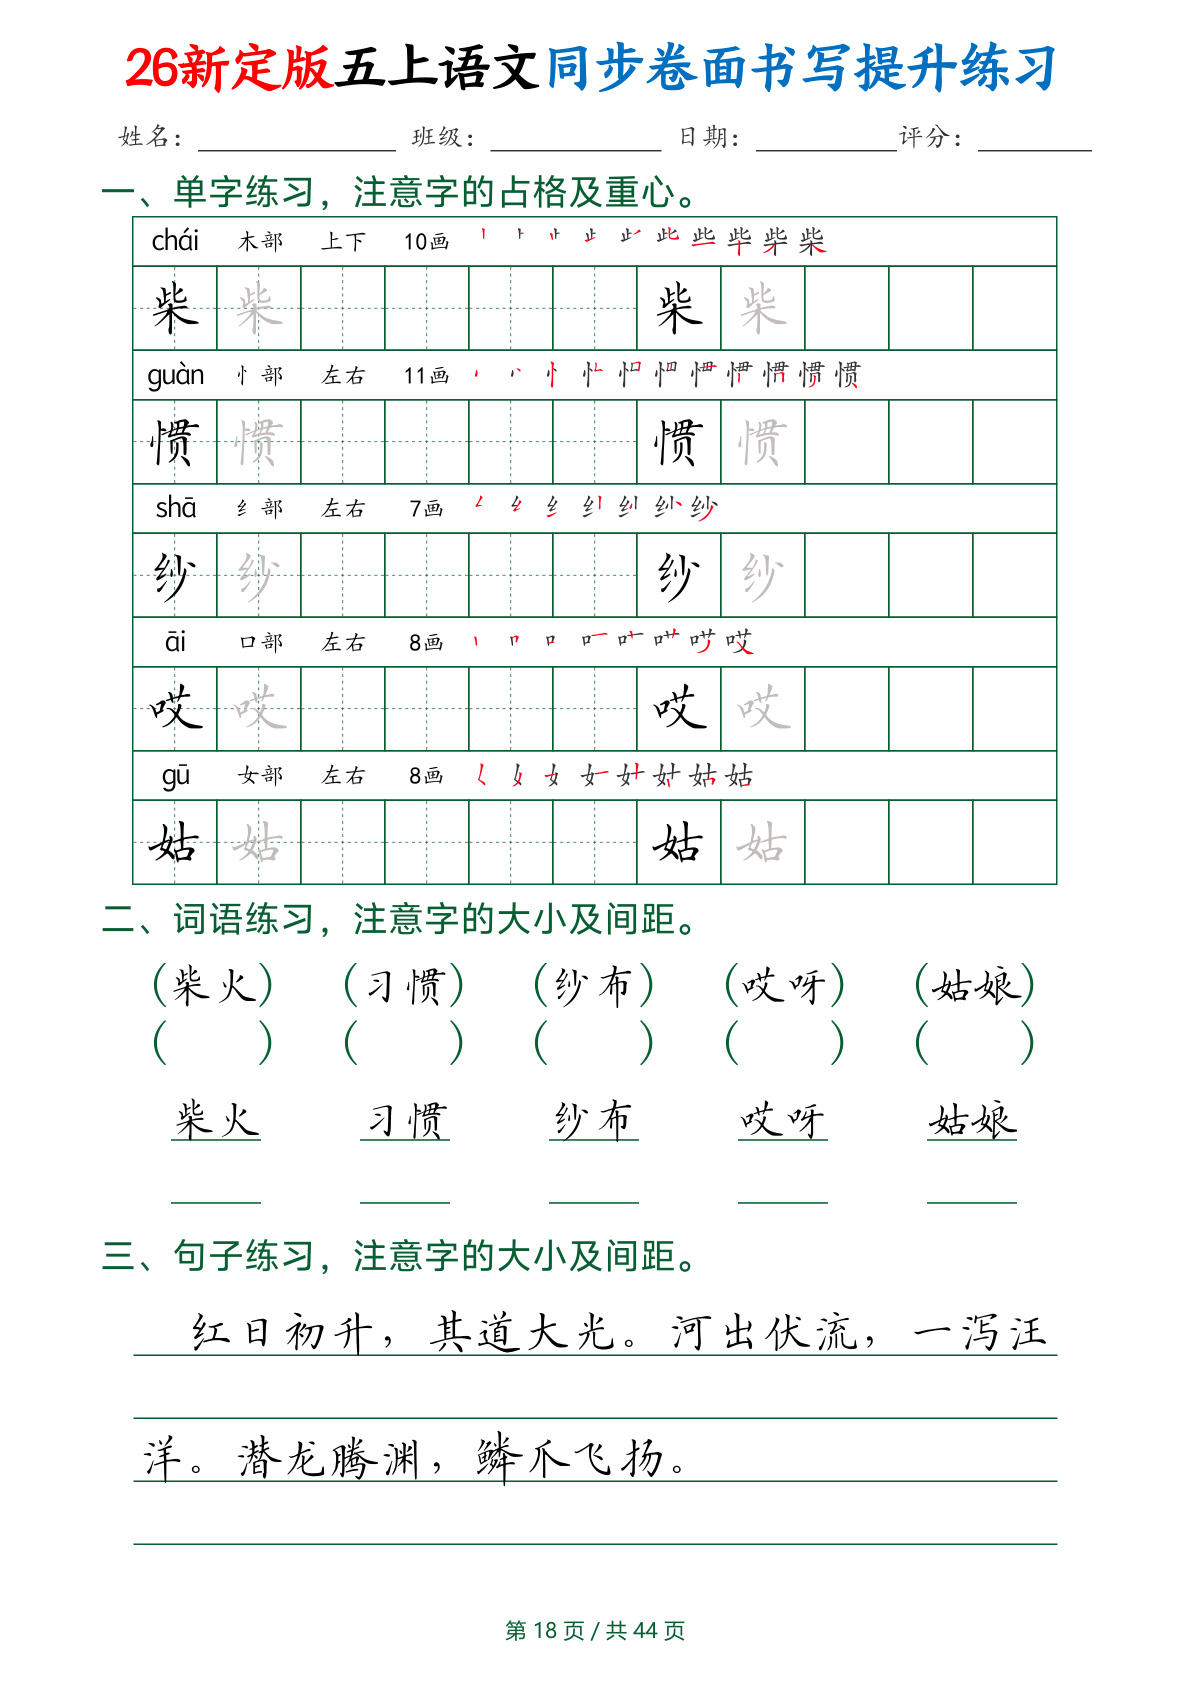 26新定版五上语文同步卷面书写提升练习
姓名： 班级： 日期： 评分：
一、单字练习，注意字的占格及重心。
chái 木部 上下 10画 柴
柴 柴 柴 柴
guàn 忄部 左右 11画 惯
惯 惯 惯 惯
shā 纟部 左右 7画 纱
纱 纱 纱 纱
āi 口部 左右 8画 哎
哎 哎 哎 哎
gū 女部 左右 8画 姑
姑 姑 姑 姑
二、词语练习，注意字的大小及间距。
（柴火） （习惯） （纱布） （哎呀） （姑娘）
（ ） （ ） （ ） （ ） （ ）
柴火 习惯 纱布 哎呀 姑娘
三、句子练习，注意字的大小及间距。
红日初升，其道大光。河出伏流，一泻汪
洋。潜龙腾渊，鳞爪飞扬。
第 18 页 / 共 44 页